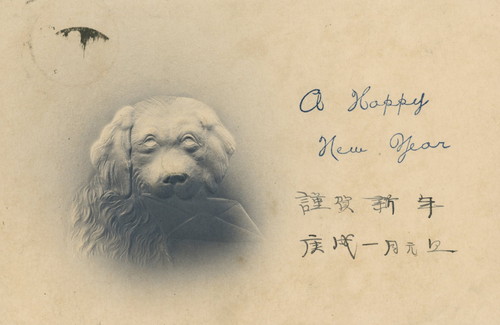 A Happy
New Year
謹賀新年
庚戌一月元旦